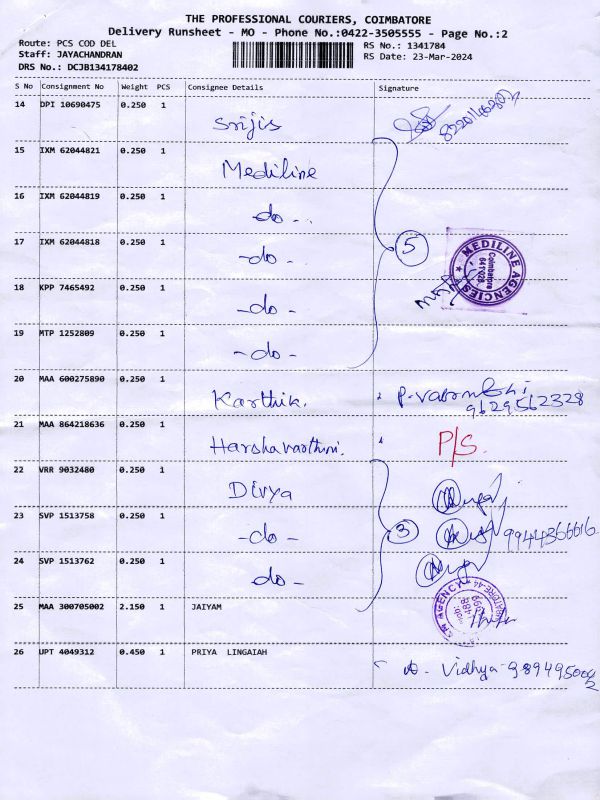 THE PROFESSIONAL COURIERS, COIMBATORE
Delivery Runsheet - MO - Phone No.:0422-3505555 - Page No.:2
Route: PCS COD DEL
RS No.: 1341784
Staff: JAYACHANDRAN
RS Date: 23-Mar-2024
DRS No.: DCJB134178402
S No Consignment No Weight PCS Consignee Details Signature
14 DPI 10690475 0.250 1 Srijis
15 IXM 62044821 0.250 1 Mediline
16 IXM 62044819 0.250 1 -do-
17 IXM 62044818 0.250 1 -do- 5
MEDILINE AGENCIES
Coimbatore
641028
18 KPP 7465492 0.250 1 -do-
19 MTP 1252809 0.250 1 -do-
20 MAA 600275890 0.250 1 Karthik.
9629562328
21 MAA 864218636 0.250 1 Harshavarthini. P/S.
22 VRR 9032480 0.250 1 Divya
23 SVP 1513758 0.250 1 -do- 3 9944366616
24 SVP 1513762 0.250 1 do-
25 MAA 300705002 2.150 1 JAIYAM
26 UPT 4049312 0.450 1 PRIYA LINGAIAH Vidhya